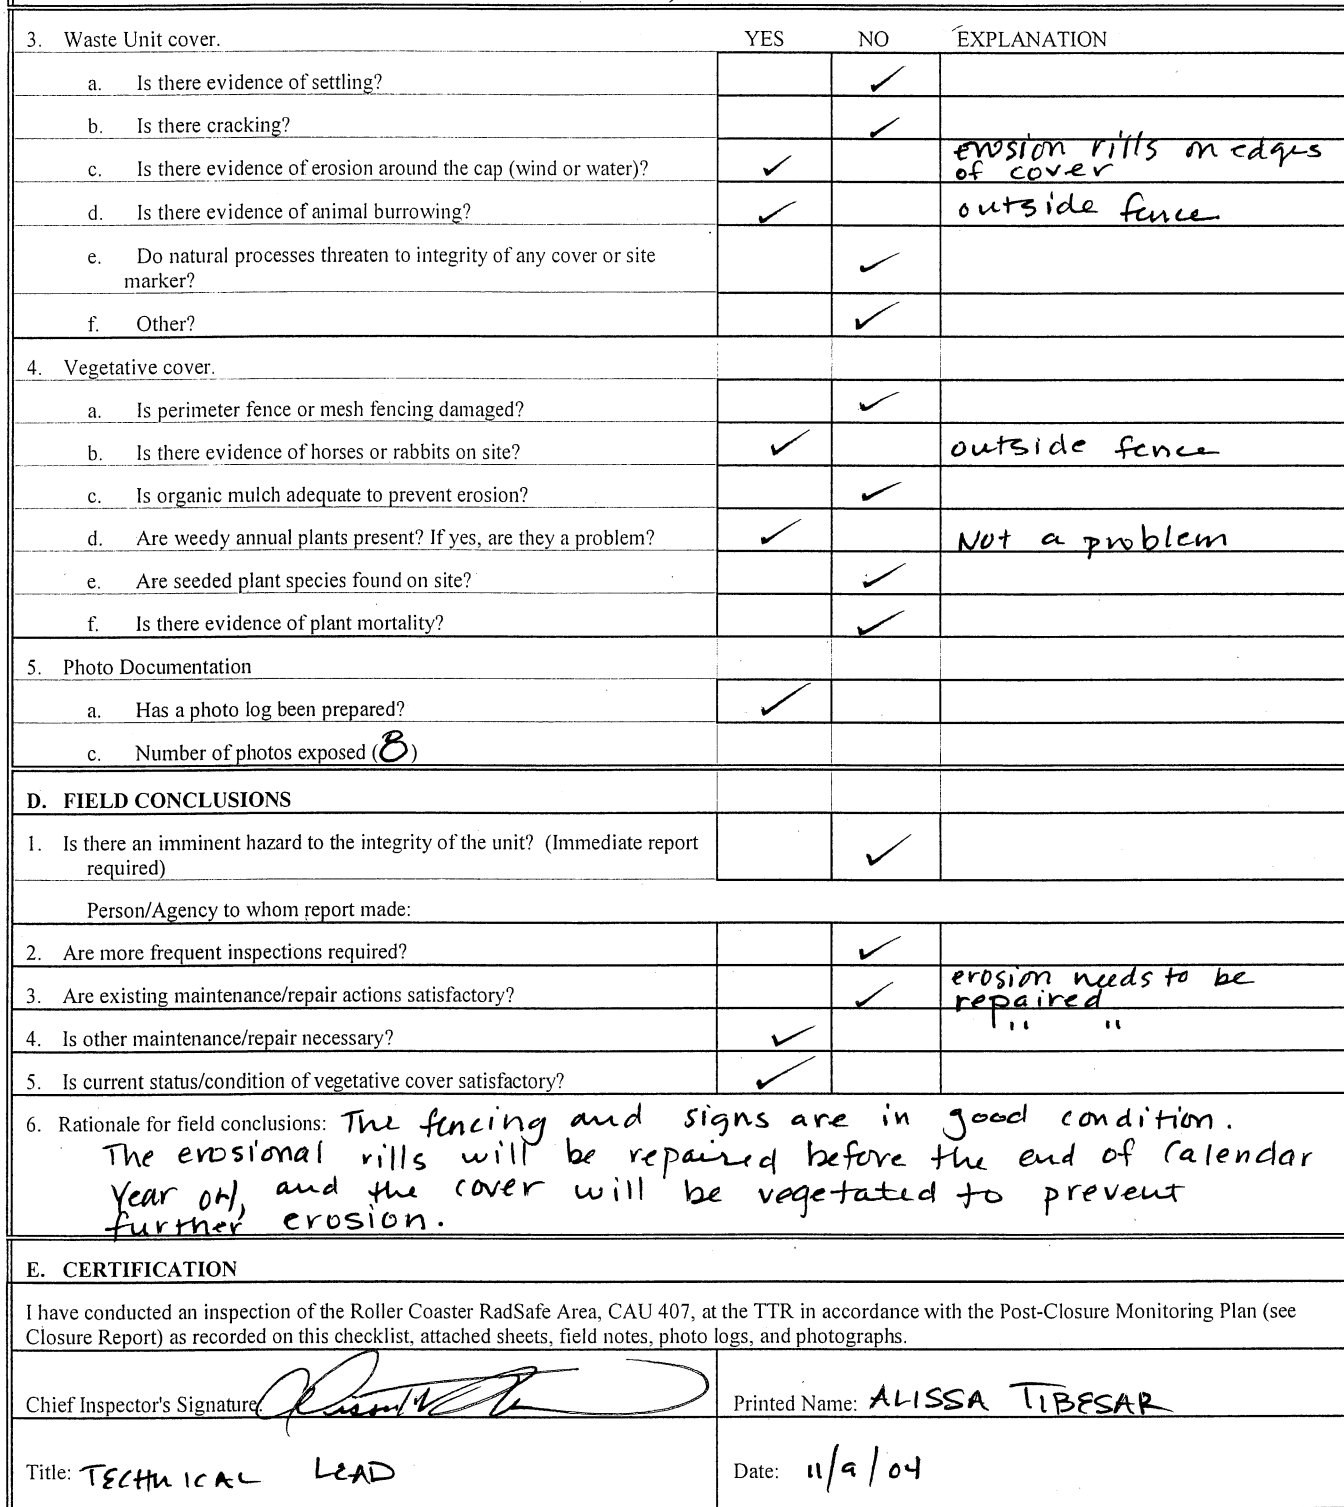 3. Waste Unit cover. YES NO EXPLANATION
a. Is there evidence of settling? ✓
b. Is there cracking? ✓
c. Is there evidence of erosion around the cap (wind or water)? ✓ erosion rills on edges
of cover
d. Is there evidence of animal burrowing? ✓ outside fence
e. Do natural processes threaten to integrity of any cover or site
marker? ✓
f. Other? ✓
4. Vegetative cover.
a. Is perimeter fence or mesh fencing damaged? ✓
b. Is there evidence of horses or rabbits on site? ✓ outside fence
c. Is organic mulch adequate to prevent erosion? ✓
d. Are weedy annual plants present? If yes, are they a problem? ✓ Not a problem
e. Are seeded plant species found on site? ✓
f. Is there evidence of plant mortality? ✓
5. Photo Documentation
a. Has a photo log been prepared? ✓
c. Number of photos exposed (8)
D. FIELD CONCLUSIONS
1. Is there an imminent hazard to the integrity of the unit? (Immediate report
required) ✓
Person/Agency to whom report made:
2. Are more frequent inspections required? ✓
3. Are existing maintenance/repair actions satisfactory? ✓ erosion needs to be
repaired
4. Is other maintenance/repair necessary? ✓ " "
5. Is current status/condition of vegetative cover satisfactory? ✓
6. Rationale for field conclusions: The fencing and signs are in good condition.
The erosional rills will be repaired before the end of Calendar
Year 04, and the cover will be vegetated to prevent
further erosion.
E. CERTIFICATION
I have conducted an inspection of the Roller Coaster RadSafe Area, CAU 407, at the TTR in accordance with the Post-Closure Monitoring Plan (see
Closure Report) as recorded on this checklist, attached sheets, field notes, photo logs, and photographs.
Chief Inspector's Signature: Printed Name: ALISSA TIBESAR
Title: TECHNICAL LEAD Date: 11/9/04